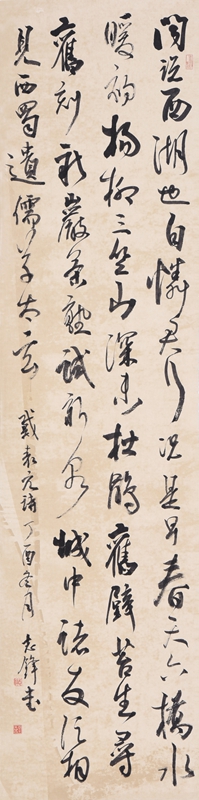 闻説西湖也自憐君行况是早春天六橋水
暖初楊柳三竺山深未杜鵑舊壁苔生尋
舊刻新巖茶熟試新泉城中諸友須相
見西蜀遺儒草太玄
戴表元詩丁酉冬月 志鋒書